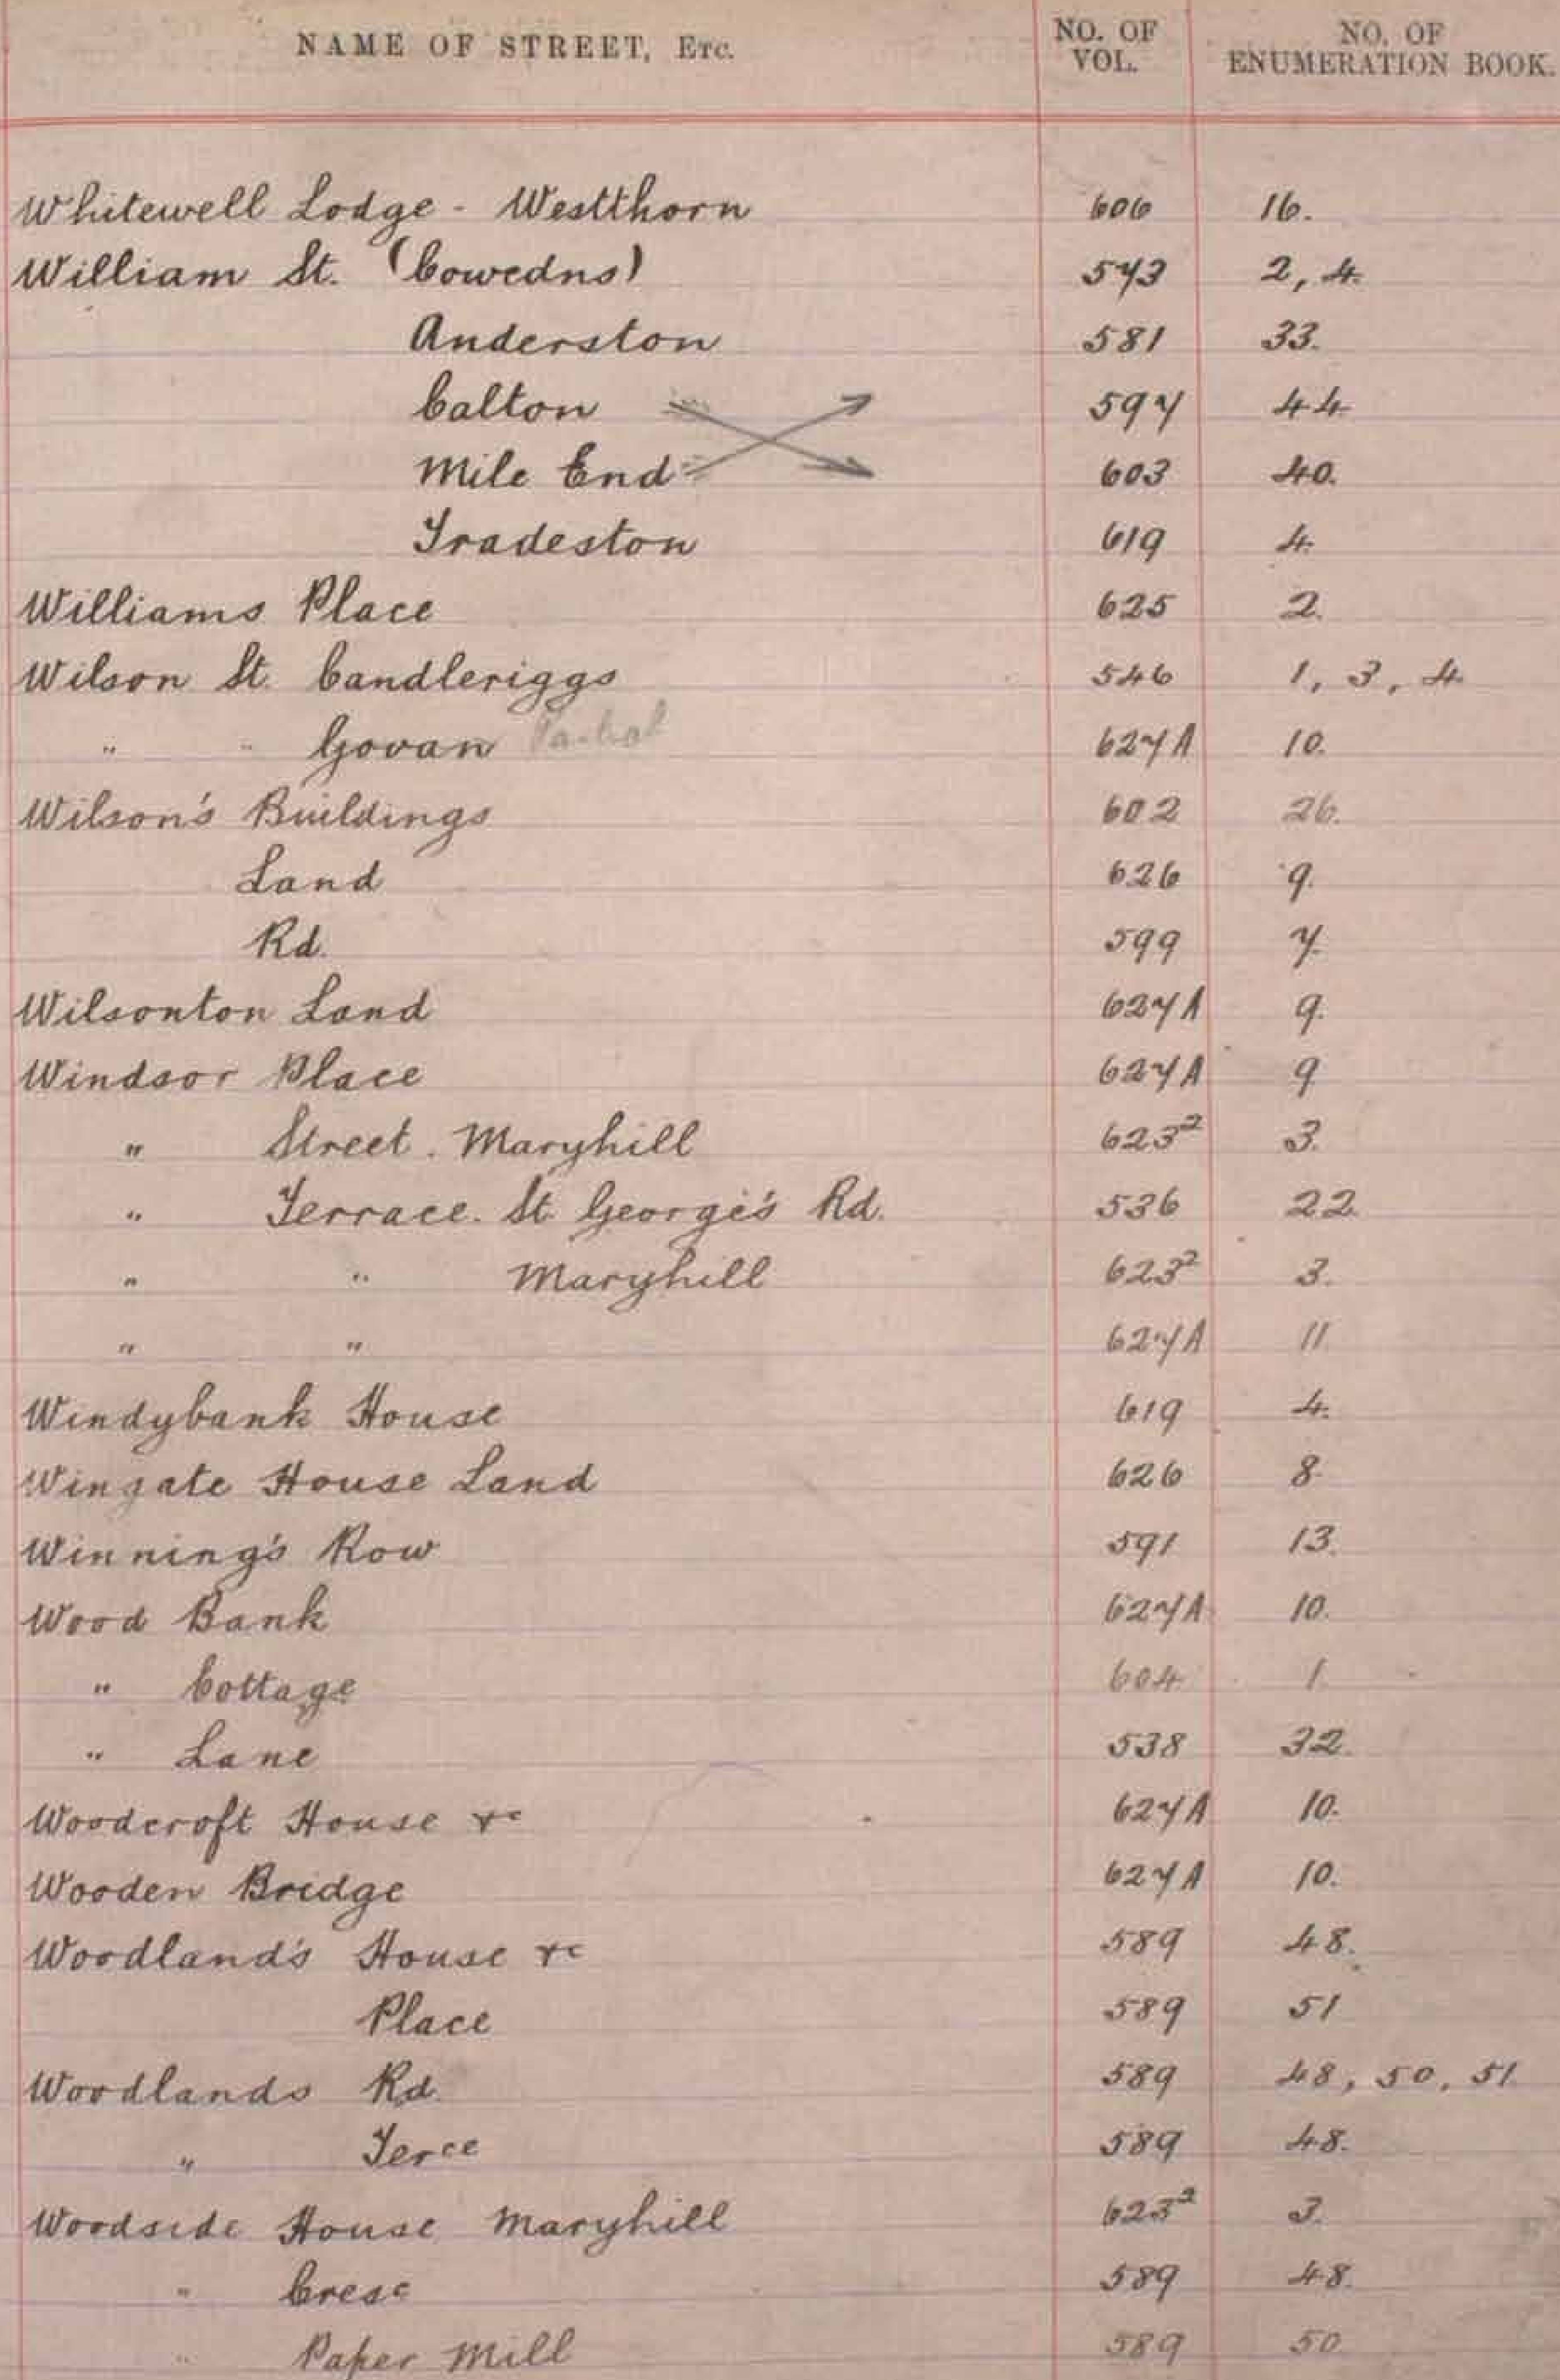 NAME OF STREET, Etc. NO. OF VOL. NO. OF ENUMERATION BOOK.
Whitewell Lodge - Westthorn 606 16.
William St. (Cowcdns) 573 2, 4.
Anderston 581 33.
Calton 597 44
Mile End 603 40.
Tradeston 619 4.
Williams Place 625 2.
Wilson St. Candleriggs 546 1, 3, 4
" " Govan 627A 10.
Wilson's Buildings 602 26.
Land 626 9.
Rd. 599 7.
Wilsonton Land 627A 9.
Windsor Place 627A 9
" Street. Maryhill 623² 3.
" Terrace. St. George's Rd. 536 22.
" " Maryhill 623² 3.
" " 627A 11
Windybank House 619 4.
Wingate House Land 626 8.
Winning's Row 591 13.
Wood Bank 627A 10.
" Cottage 604 1
" Lane 538 32.
Woodcroft House &c 627A 10.
Wooden Bridge 627A 10.
Woodland's House &c 589 48.
Place 589 51
Woodlands Rd. 589 48, 50, 51.
" Terce 589 48.
Woodside House Maryhill 623² 3.
" Cresc 589 48.
" Paper Mill 589 50